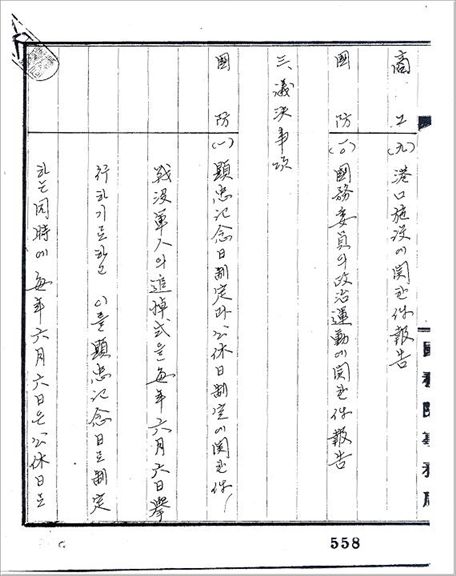 商工 (九) 港口施設에 関한 件 報告
國防 (一〇) 國務委員의 政治運動에 関한 件 報告
三、議決事項
國防 (一) 顯忠記念日 制定과 公休日 制定에 関한 件
戰沒軍人의 追悼式을 每年 六月 六日 擧
行하기로 하고 이를 顯忠記念日로 制定
하는 同時에 每年 六月 六日은 公休日로
558